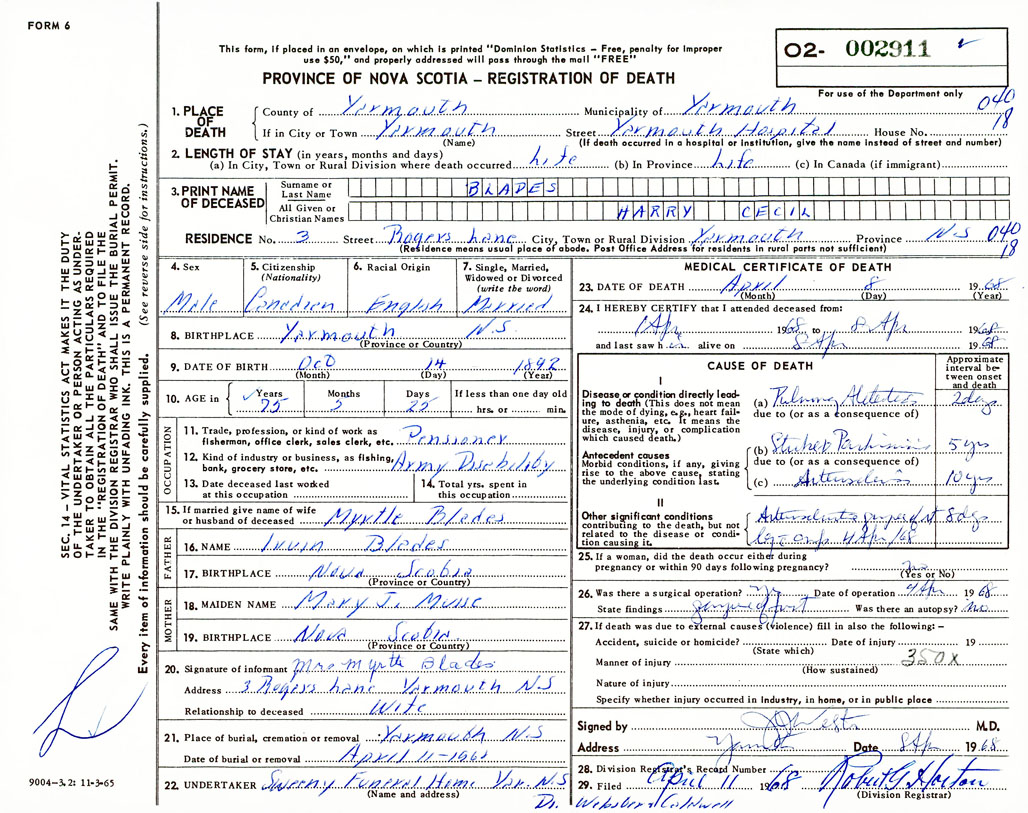 FORM 6
This form, if placed in an envelope, on which is printed "Dominion Statistics – Free, penalty for improper
use $50," and properly addressed will pass through the mail "FREE"
PROVINCE OF NOVA SCOTIA – REGISTRATION OF DEATH
02- 002911
For use of the Department only
040
18
1. PLACE OF DEATH
County of Yarmouth Municipality of Yarmouth
If in City or Town Yarmouth Street Yarmouth Hospital House No.
(Name) (If death occurred in a hospital or institution, give the name instead of street and number)
2. LENGTH OF STAY (in years, months and days)
(a) In City, Town or Rural Division where death occurred Life (b) In Province Life (c) In Canada (if immigrant)
3. PRINT NAME OF DECEASED
Surname or Last Name BLADES
All Given or Christian Names HARRY CECIL
RESIDENCE No. 3 Street Rogers Lane City, Town or Rural Division Yarmouth Province N.S 040
18
(Residence means usual place of abode. Post Office Address for residents in rural parts not sufficient)
4. Sex
Male
5. Citizenship (Nationality)
Canadian
6. Racial Origin
English
7. Single, Married, Widowed or Divorced (write the word)
Married
8. BIRTHPLACE Yarmouth N.S.
(Province or Country)
9. DATE OF BIRTH Oct 14 1892
(Month) (Day) (Year)
10. AGE in Years Months Days If less than one day old
75 5 25 hrs. or min.
OCCUPATION
11. Trade, profession, or kind of work as
fisherman, office clerk, sales clerk, etc. Pensioner
12. Kind of industry or business, as fishing,
bank, grocery store, etc. Army Disability
13. Date deceased last worked
at this occupation
14. Total yrs. spent in
this occupation
15. If married give name of wife
or husband of deceased Myrtle Blades
FATHER
16. NAME Irvin Blades
17. BIRTHPLACE Nova Scotia
(Province or Country)
MOTHER
18. MAIDEN NAME Mary J. Muise
19. BIRTHPLACE Nova Scotia
(Province or Country)
20. Signature of informant Mrs Myrtle Blades
Address 3 Rogers Lane Yarmouth N.S
Relationship to deceased Wife
21. Place of burial, cremation or removal Yarmouth N.S
Date of burial or removal April 11-1968
22. UNDERTAKER Sweeny Funeral Home Yar. N.S
(Name and address)
Dr. Webster Caldwell
MEDICAL CERTIFICATE OF DEATH
23. DATE OF DEATH April 8 1968
(Month) (Day) (Year)
24. I HEREBY CERTIFY that I attended deceased from:
1 Apr 1968 to 8 Apr 1968
and last saw him alive on 8 Apr 1968
CAUSE OF DEATH
Approximate interval between onset and death
I
Disease or condition directly leading to death (This does not mean
the mode of dying, e.g., heart failure, asthenia, etc. It means the
disease, injury, or complication
which caused death.)
(a) 2 days
due to (or as a consequence of)
Antecedent causes
Morbid conditions, if any, giving
rise to the above cause, stating
the underlying condition last.
(b) 5 yrs
due to (or as a consequence of)
(c) 10 yrs
II
Other significant conditions
contributing to the death, but not
related to the disease or condition causing it.
8 days
4 Apr/68
25. If a woman, did the death occur either during
pregnancy or within 90 days following pregnancy?
(Yes or No)
26. Was there a surgical operation? Yes Date of operation 4 Apr 1968
State findings Was there an autopsy? no
27. If death was due to external causes (violence) fill in also the following: –
Accident, suicide or homicide? Date of injury 19
(State which)
Manner of injury 350X
(How sustained)
Nature of injury
Specify whether injury occurred in Industry, in home, or in public place
Signed by M.D.
Address Date 8 Apr 1968
28. Division Registrar's Record Number
29. Filed April 11 1968 Robert G Horton
(Division Registrar)
SEC. 14 – VITAL STATISTICS ACT MAKES IT THE DUTY
OF THE UNDERTAKER OR PERSON ACTING AS UNDER-
TAKER TO OBTAIN ALL THE PARTICULARS REQUIRED
IN THE "REGISTRATION OF DEATH" AND TO FILE THE
SAME WITH THE DIVISION REGISTRAR WHO SHALL ISSUE THE BURIAL PERMIT.
WRITE PLAINLY WITH UNFADING INK. THIS IS A PERMANENT RECORD.
Every item of information should be carefully supplied. (See reverse side for instructions.)
9004–3.2: 11-3-65